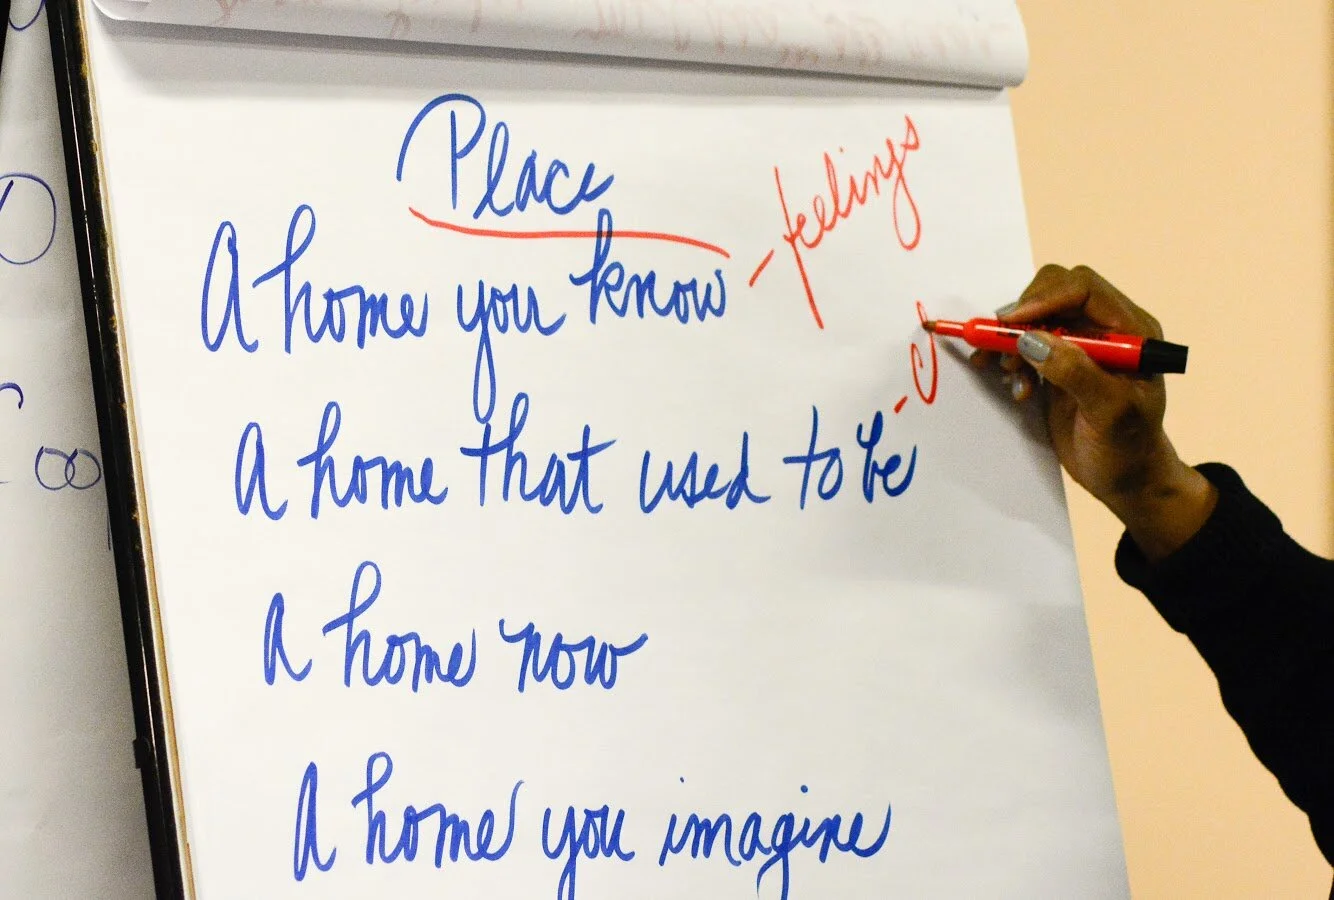 Place
A home you know - feelings
A home that used to be -
A home now
A home you imagine